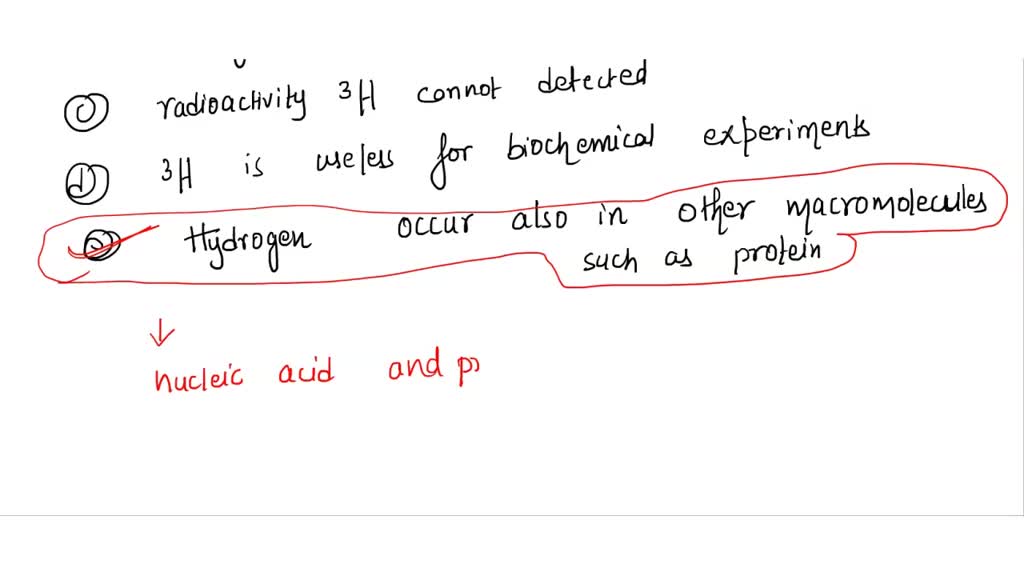 c radioactivity ³H connot detected
d ³H is useless for biochemical experiments
e Hydrogen occur also in other macromolecules
such as protein
nucleic acid and